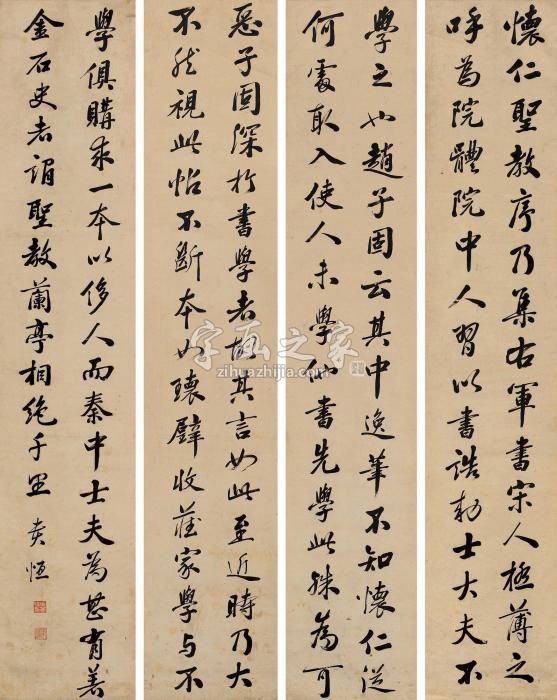 懷仁聖教序乃集右軍書宋人極薄之
呼為院體院中人習以書誥勅士大夫不
學之也趙子固云其中逸筆不知懷仁從
何處取入使人未學他書先學此殊為可
惡子固深於書學者故其言如此至近時乃大
不然視此帖不斷本如瓌璧收藏家學與不
學俱購求一本以侈人而秦中士夫為甚有著
金石史者謂聖教蘭亭相絶千里
奕恒
字画之家
zihuazhijia.com